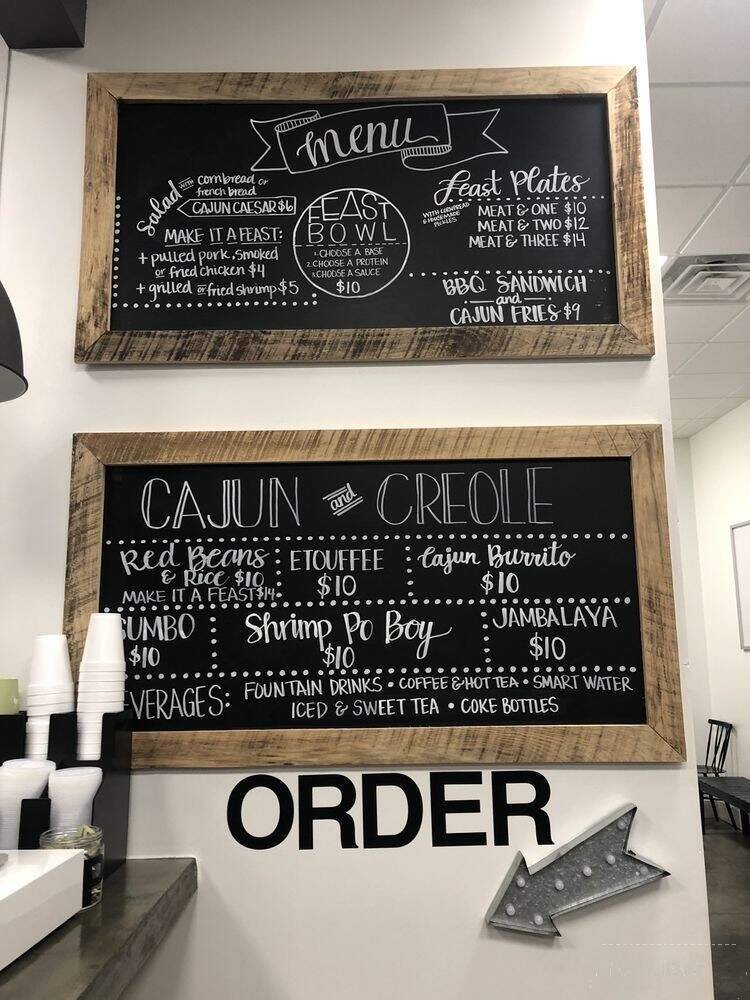 menu
Salad WITH cornbread or
french bread
CAJUN CAESAR $6
MAKE IT A FEAST:
+ pulled pork, smoked
or fried chicken $4
+ grilled or fried shrimp $5
FEAST
BOWL
1. CHOOSE A BASE
2. CHOOSE A PROTEIN
3. CHOOSE A SAUCE
$10
Feast Plates
WITH CORNBREAD
& HOUSEMADE
PICKLES
MEAT & ONE $10
MEAT & TWO $12
MEAT & THREE $14
BBQ SANDWICH
and
CAJUN FRIES $9
CAJUN and CREOLE
Red Beans
& Rice $10
MAKE IT A FEAST $14
ETOUFFEE
$10
Cajun Burrito
$10
GUMBO
$10
Shrimp Po Boy
$10
JAMBALAYA
$10
VERAGES: FOUNTAIN DRINKS • COFFEE & HOT TEA • SMART WATER
ICED & SWEET TEA • COKE BOTTLES
ORDER